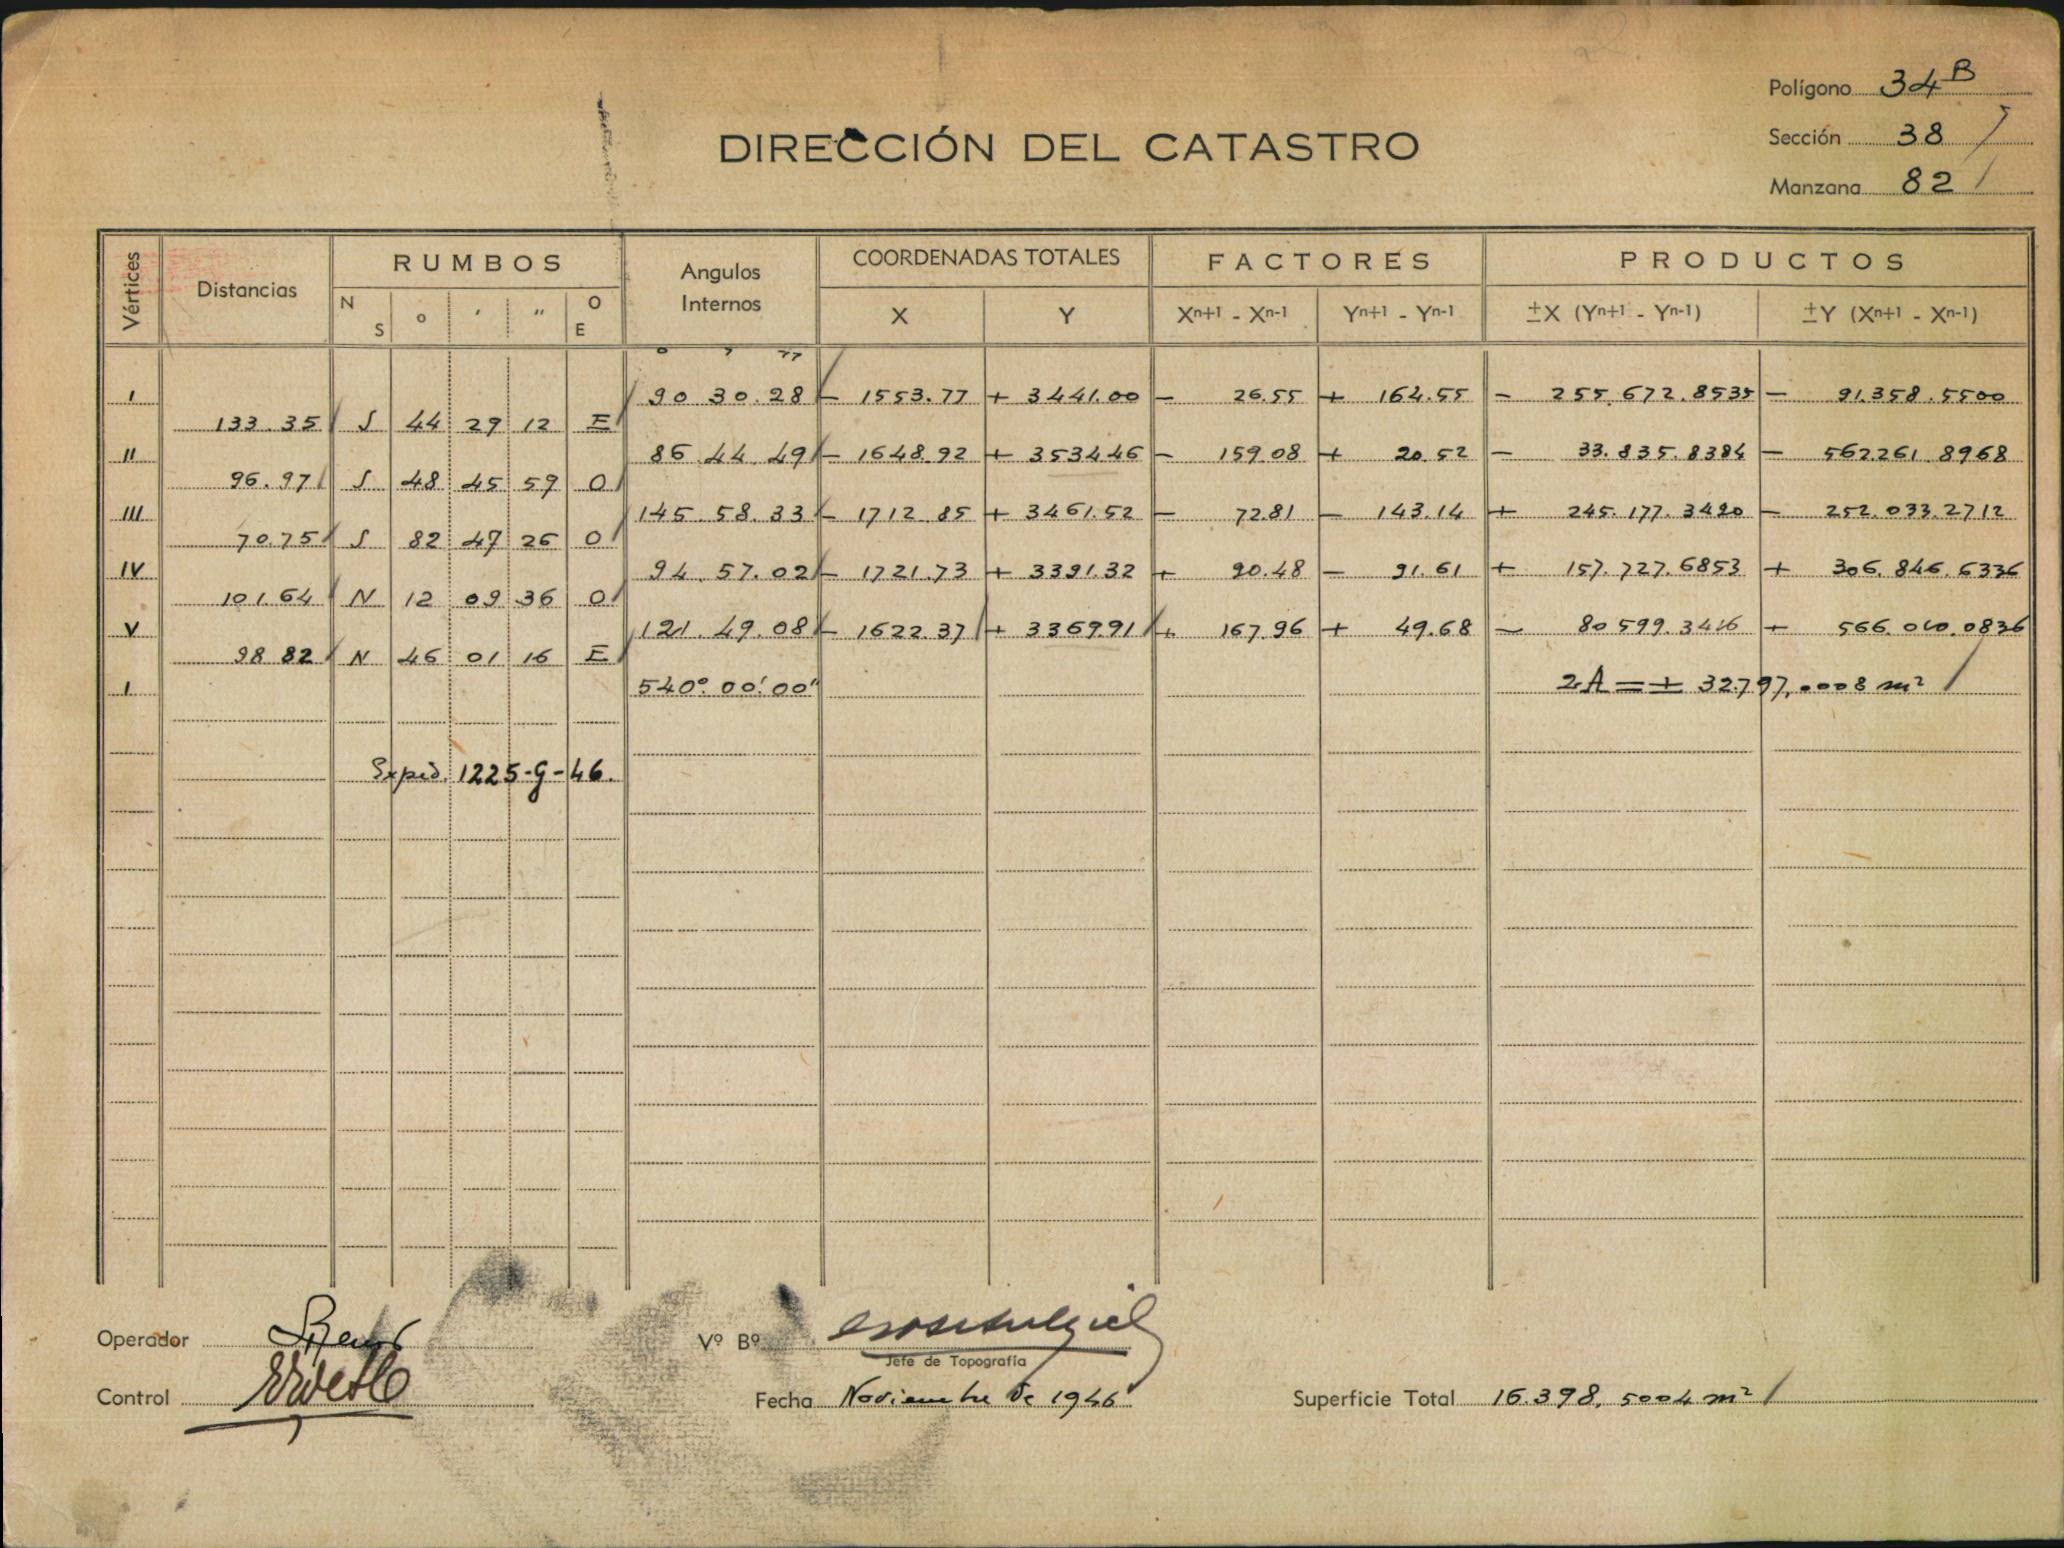 Polígono 34B
DIRECCIÓN DEL CATASTRO
Sección 38
Manzana 82
Vértices Distancias RUMBOS Angulos Internos COORDENADAS TOTALES FACTORES PRODUCTOS
N S o ′ ″ O E X Y Xn+1 - Xn-1 Yn+1 - Yn-1 ±X (Yn+1 - Yn-1) ±Y (Xn+1 - Xn-1)
o ′ ″
I 90 30.28 - 1553.77 + 3441.00 - 26.55 + 164.55 - 255.672.8535 - 91.358.5500
133.35 S 44 29 12 E
II 86.44.49 - 1648.92 + 3534.46 - 159.08 + 20.52 - 33.835.8384 - 562.261.8968
96.97 S 48 45 59 O
III 145.58.33 - 1712.85 + 3461.52 - 72.81 - 143.14 + 245.177.3490 - 252.033.2712
70.75 S 82 47 26 O
IV 94.57.02 - 1721.73 + 3391.32 + 90.48 - 91.61 + 157.727.6853 + 306.846.6336
101.64 N 12 09 36 O
V 121.49.08 - 1622.37 + 3369.91 + 167.96 + 49.68 - 80 599.3416 + 566.010.0836
98 82 N 46 01 16 E
I 540°.00′.00″ 2A = + 32.797,0008 m²
Exped. 1225-G-46.
Operador
Vº Bº
Jefe de Topografía
Control
Fecha Noviembre de 1946
Superficie Total 16.398,5004 m²